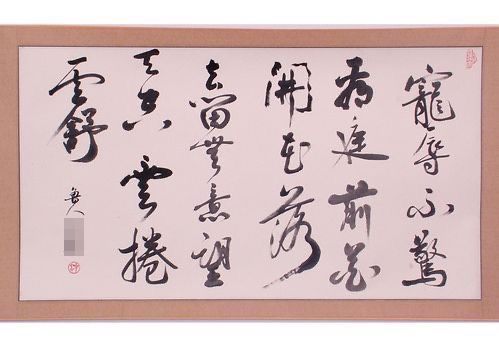 寵辱不驚
看庭前花
開花落
去留無意望
天空雲捲
雲舒